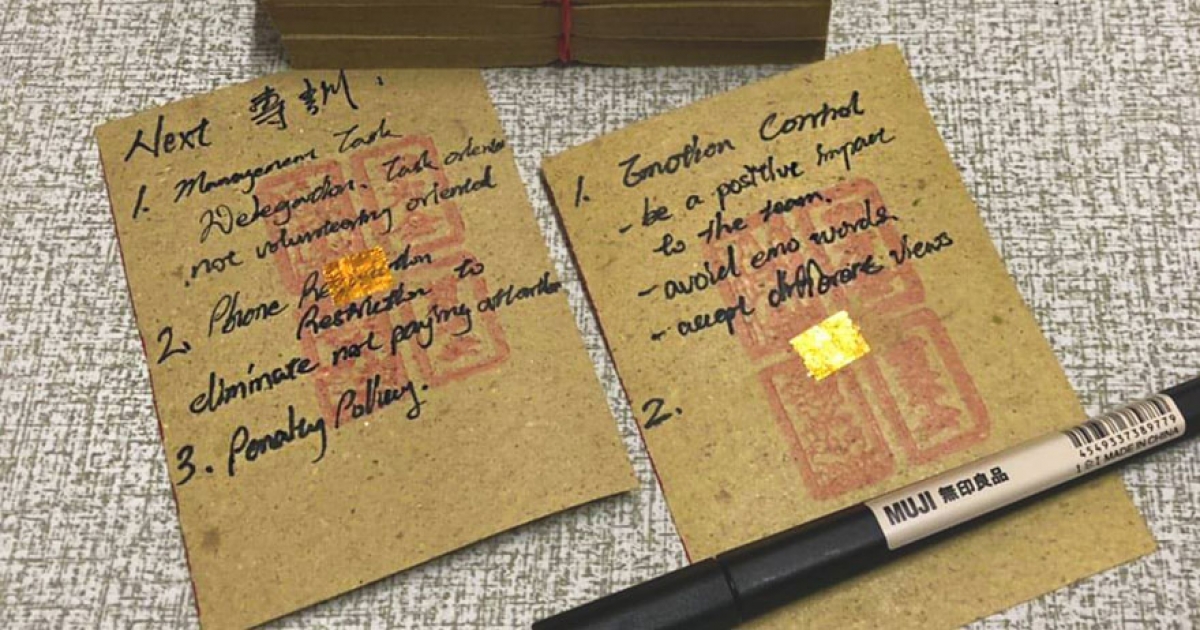 Next 專訓:
1. Management Task
Delegation. Task oriented
not volunteering oriented
2. Phone
Restriction to
eliminate not paying attention
3. Penalty Policy.
1. Emotion Control
- be a positive impact
to the team.
- avoid emo words
- accept different views
2.
MUJI 無印良品
4549337389779
MADE IN CHINA